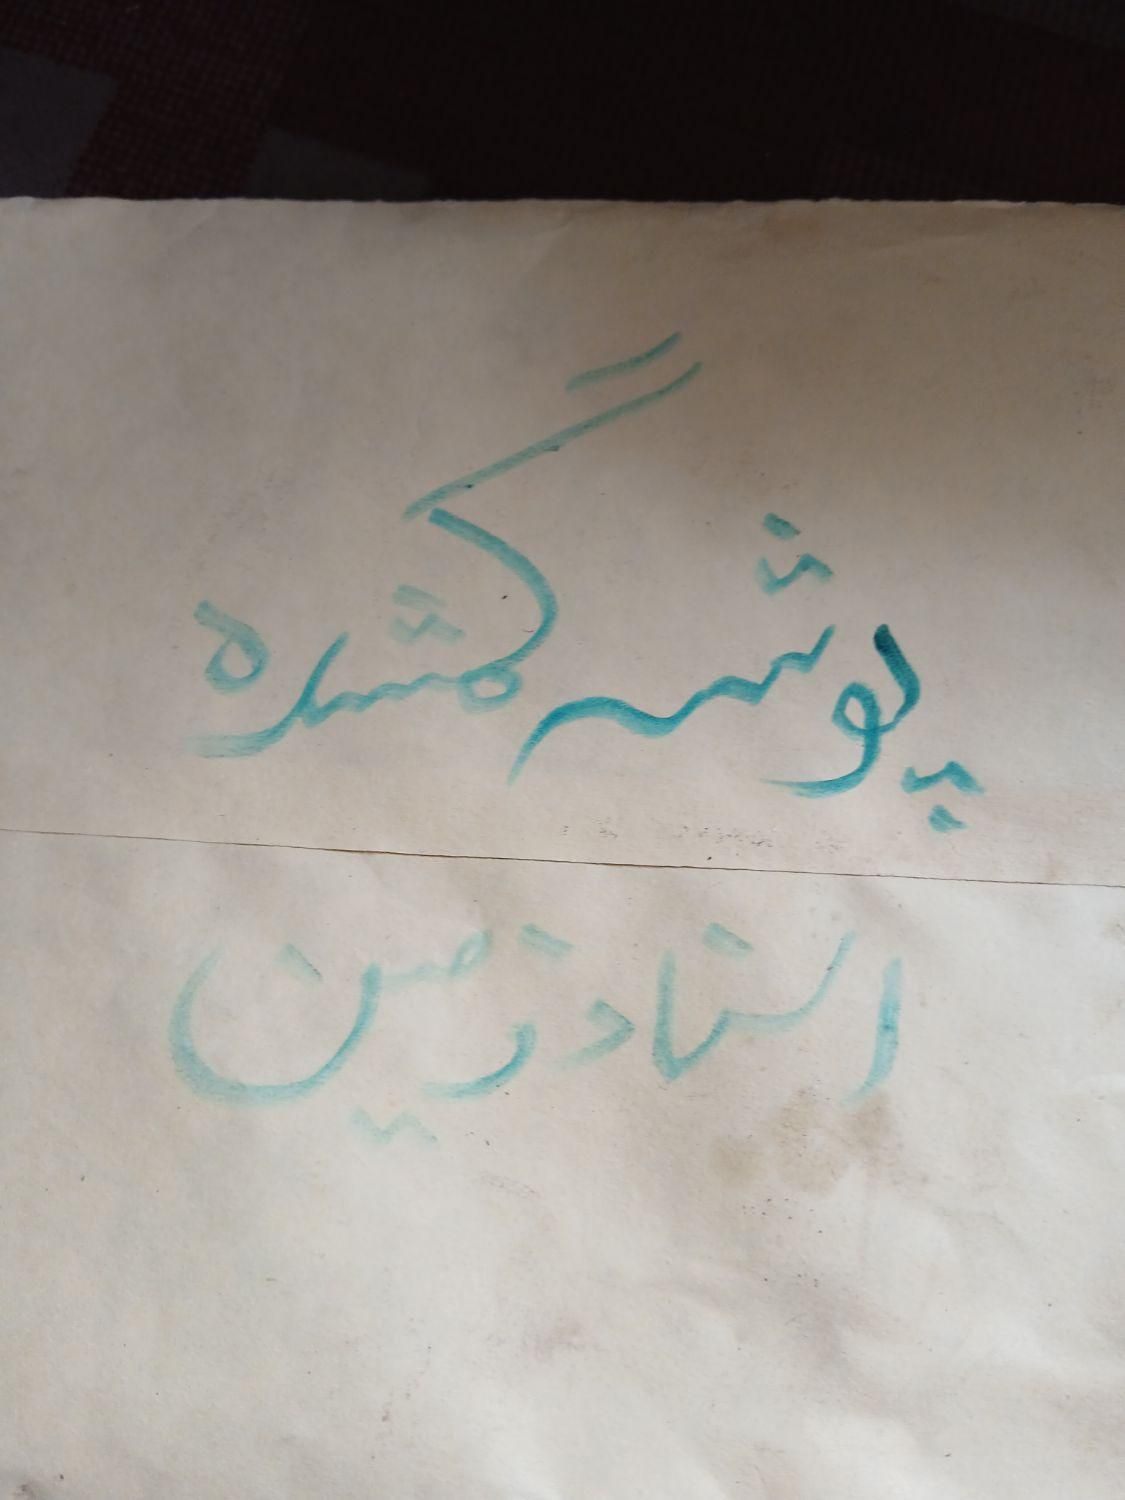 پوشه گمشده
استاد زمین